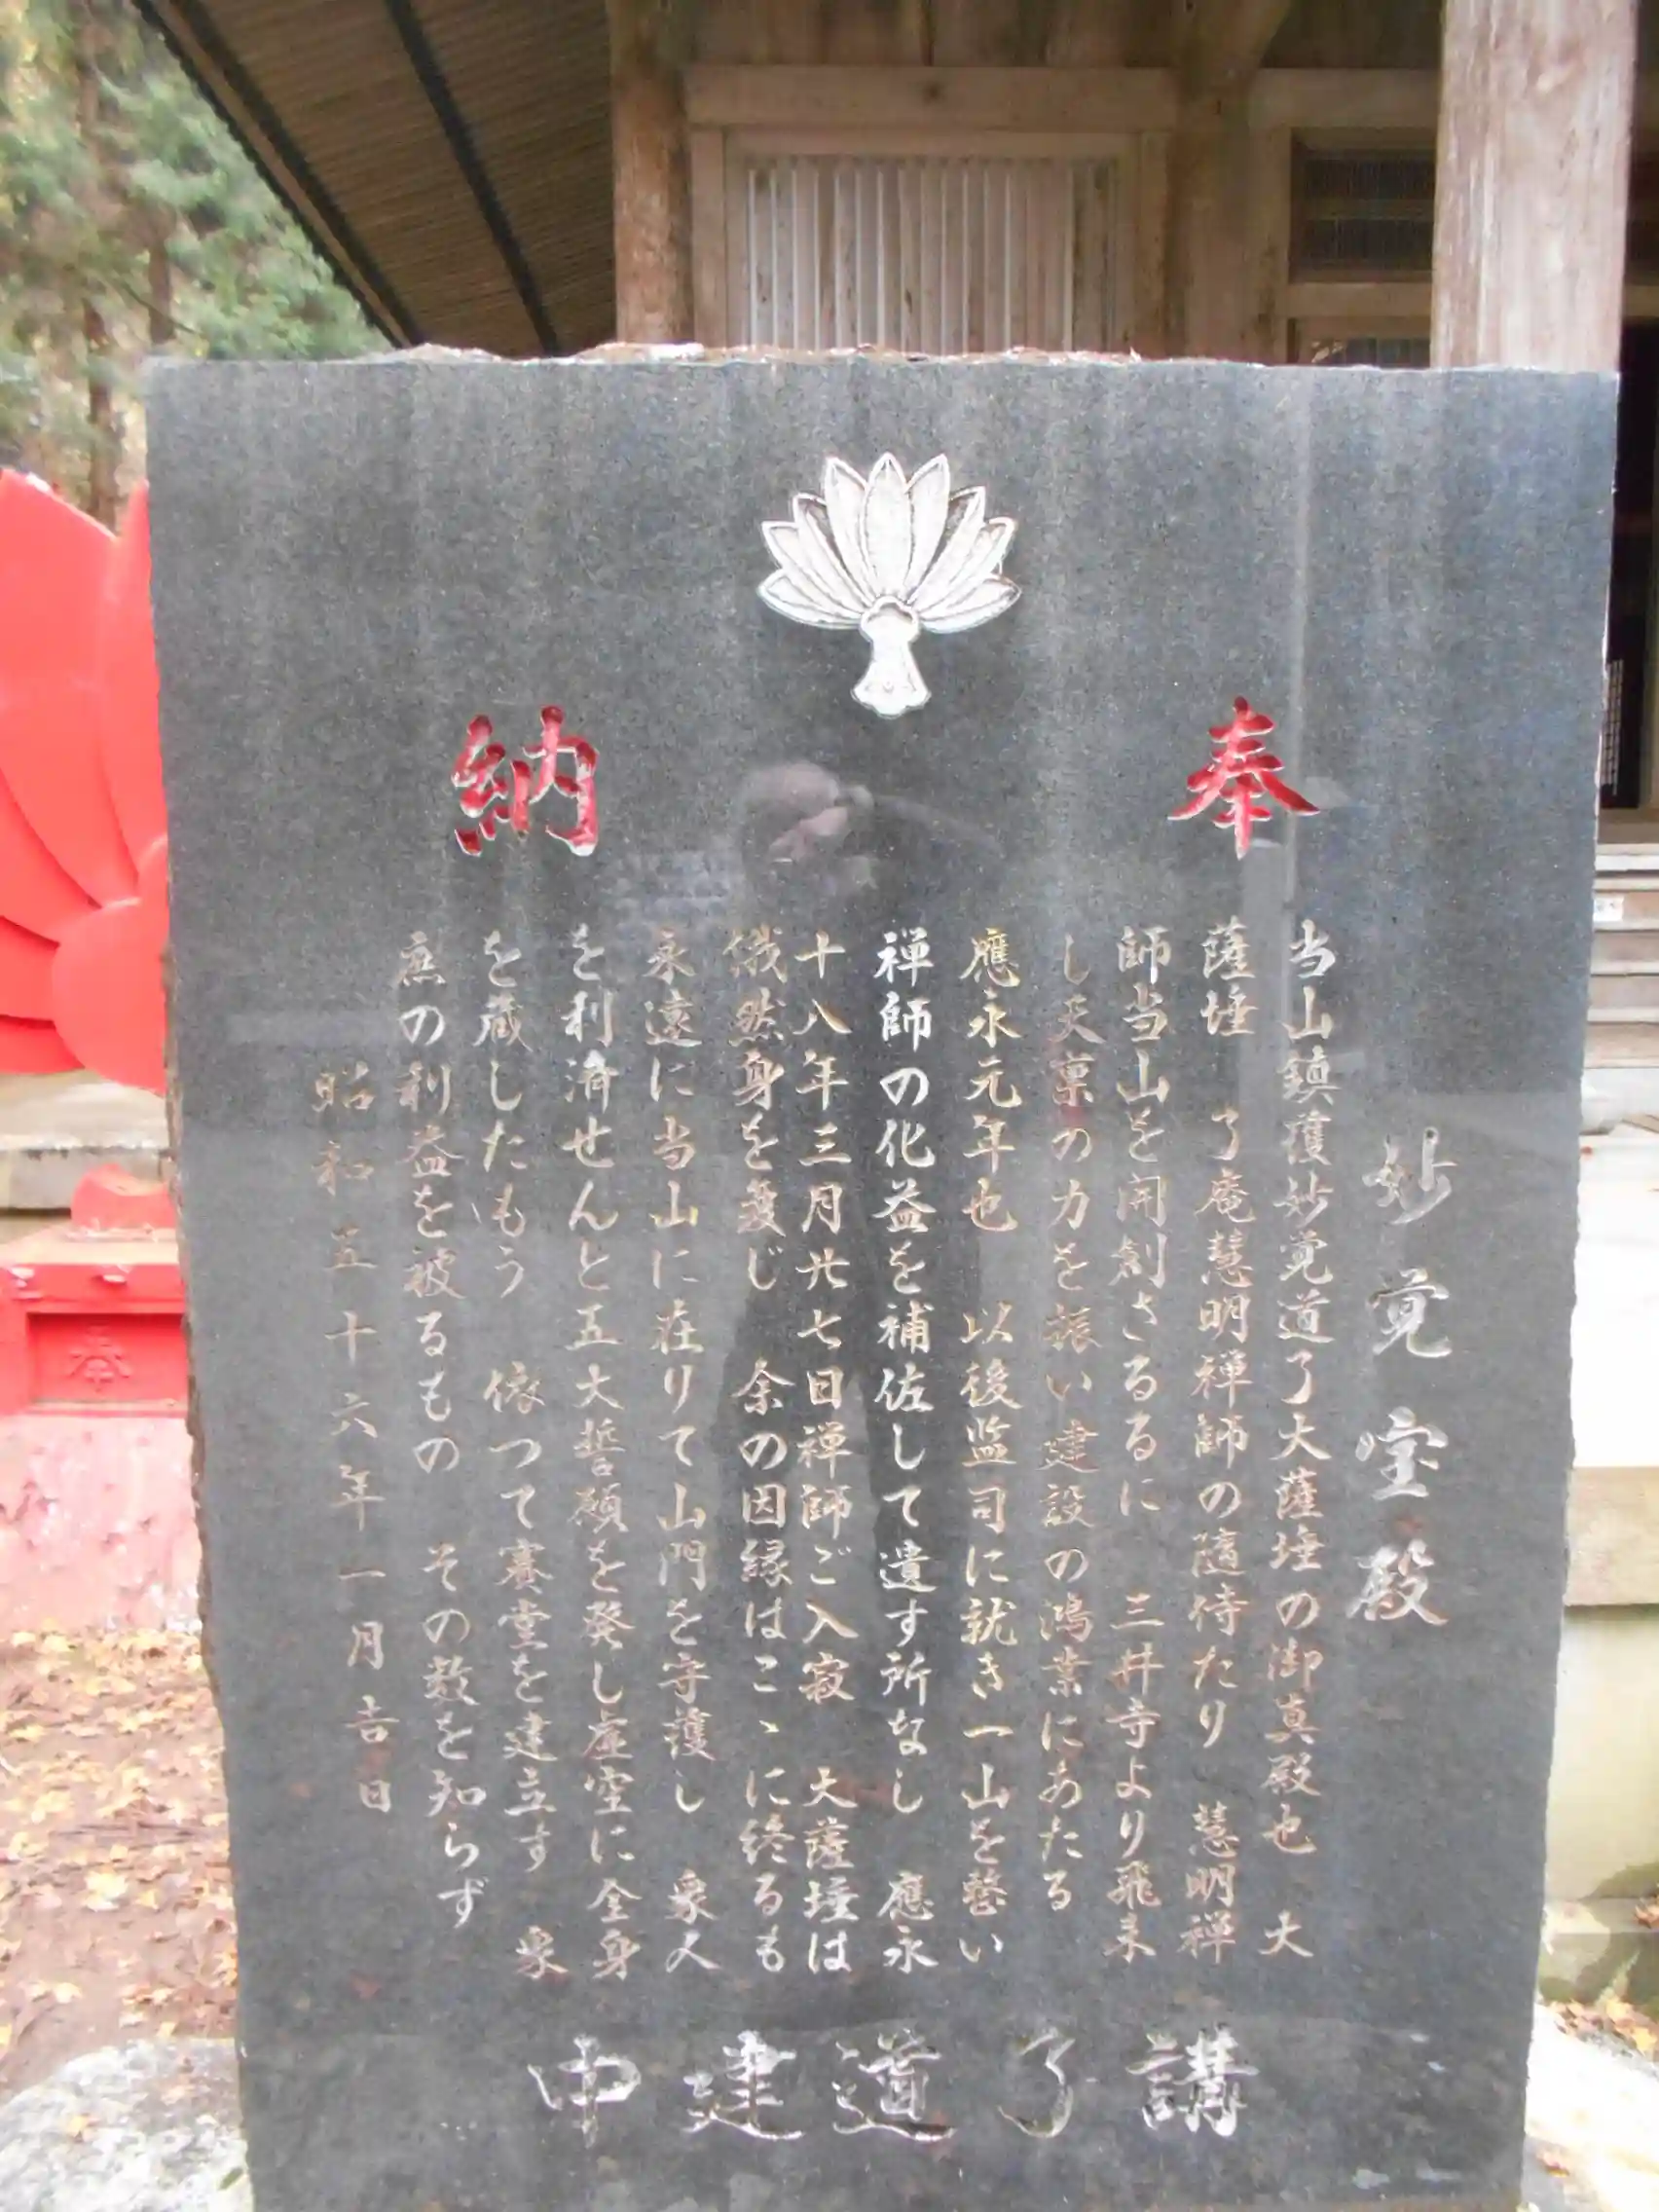 奉納
妙覚宝殿
当山鎮護妙覚道了大薩埵の御真殿也　大
薩埵　了庵慧明禅師の随侍たり　慧明禅
師当山を開創さるるに　三井寺より飛来
し天稟の力を振い建設の鴻業にあたる
應永元年也　以後監司に就き一山を整い
禅師の化益を補佐して遺す所なし　應永
十八年三月廿七日禅師ご入寂　大薩埵は
俄然身を変じ　余の因縁はこゝに終るも
永遠に当山に在りて山門を守護し　衆人
を利済せんと五大誓願を発し虚空に全身
を蔵したもう　依つて賽堂を建立す　衆
庶の利益を被るもの　その数を知らず
昭和五十六年一月吉日
申建道了講
奉